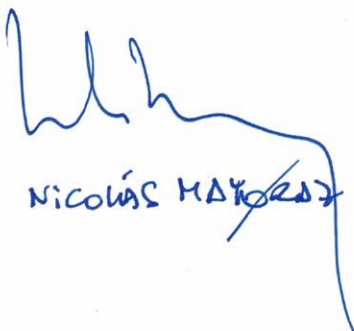 NICOLÁS MAYORAZ